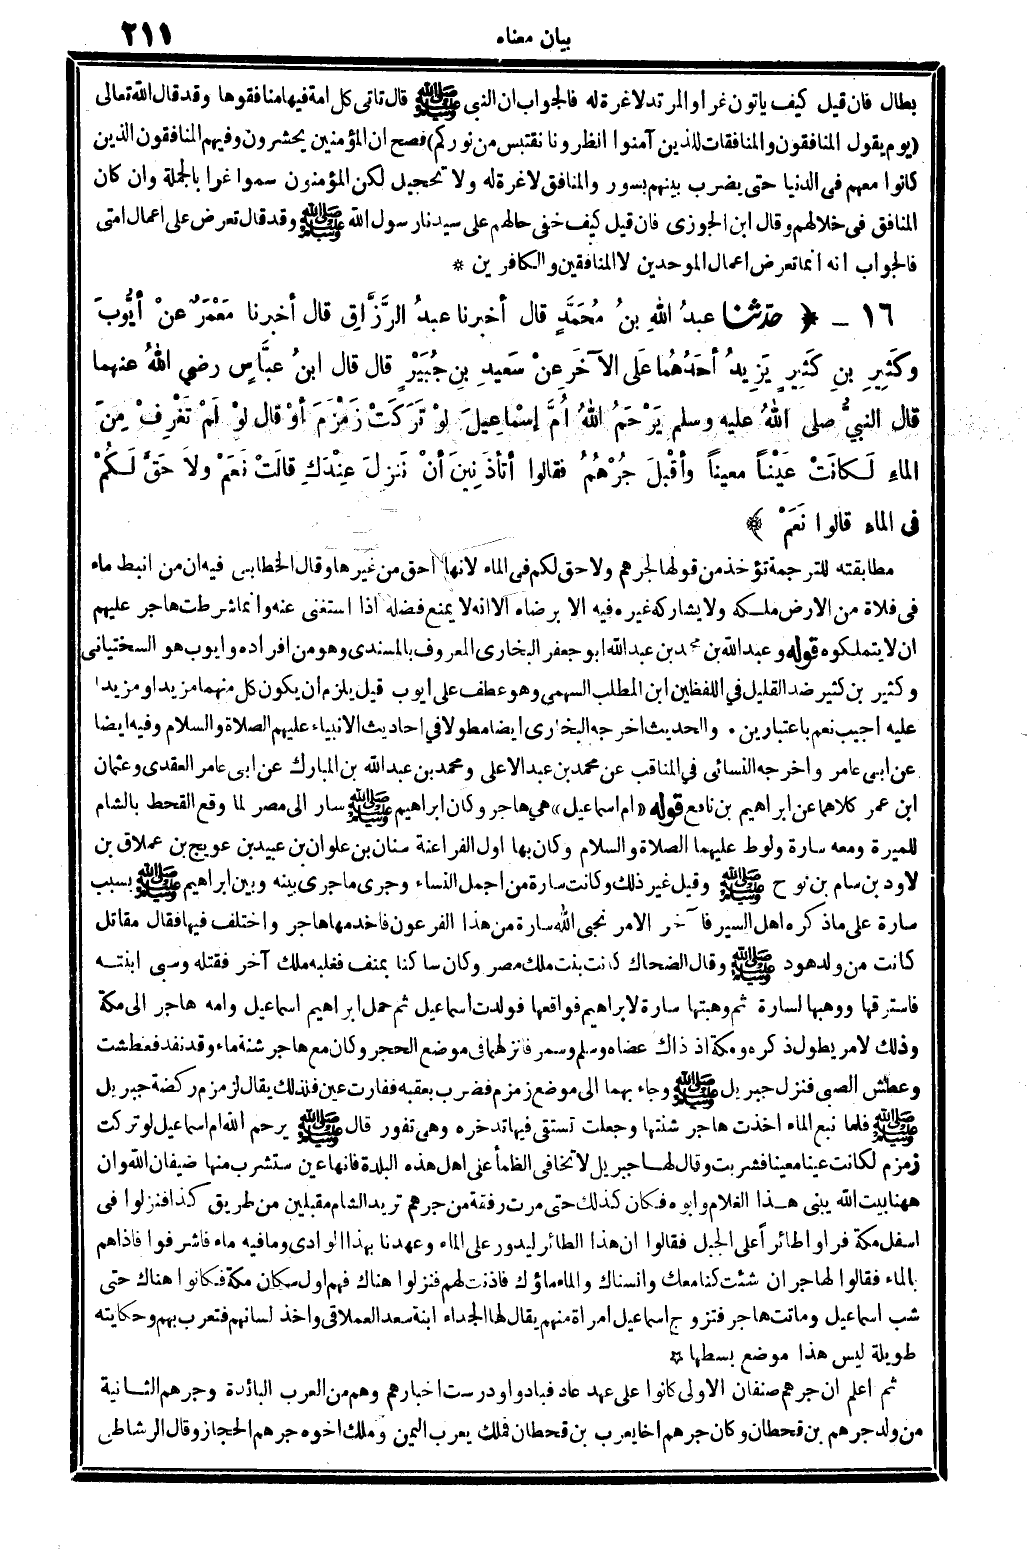 بيان معناه ٢١١
بطال فان قيل كيف ياتون غرا والمرتد لا غرة له فالجواب ان النبي ﷺ قال تاتى كل امة فيها منافقوها وقد قال الله تعالى
(يوم يقول المنافقون والمنافقات للذين آمنوا انظرونا نقتبس من نوركم) فصح ان المؤمنين يحشرون وفيهم المنافقون الذين
كانوا معهم فى الدنيا حتى يضرب بينهم بسور والمنافق لا غرة له ولا تحجيل لكن المؤمنون سموا غرا بالجملة وان كان
المنافق فى خلالهم وقال ابن الجوزى فان قيل كيف خفى حالهم على سيدنا رسول الله ﷺ وقد قال تعرض على اعمال امتى
فالجواب انه انما تعرض اعمال الموحدين لا المنافقين والكافرين *
١٦ - ﴿ حدثنا عبدُ اللهِ بنُ مُحَمَّدٍ قال أخبرنا عبدُ الرَّزَّاقِ قال أخبرنا مَعْمَرٌ عنْ أيُّوبَ
وكَثِيرِ بنِ كَثِيرٍ يَزِيدُ أحَدُهُما عَلى الآخَرِ عنْ سَعيدِ بنِ جُبَيْرٍ قال قال ابنُ عبَّاسٍ رضي اللهُ عنهما
قال النبيُّ صلى اللهُ عليه وسلم يَرْحَمُ اللهُ أُمَّ إسْماعِيلَ لوْ تَرَكَتْ زَمْزَمَ أوْ قال لوْ لَمْ تَغْرِفْ مِنَ
الماءِ لَكانَتْ عَيْناً معيناً وأقْبلَ جُرْهُمُ فقالوا أتأذَنِينَ أنْ نَنزِلَ عِنْدَكِ قالَتْ نَعَمْ ولاَ حَقَّ لَكُمْ
فى الماءِ قالوا نَعَمْ ﴾
مطابقته للترجمة تؤخذ من قولها لجرهم ولا حق لكم فى الماء لانها احق من غيرها وقال الخطابى فيه ان من انبط ماء
فى فلاة من الارض ملكه ولا يشاركه غيره فيه الا برضاه الا انه لا يمنع فضله اذا استغنى عنه وانما شرطت هاجر عليهم
ان لا يتملكوه قوله وعبدالله بن محمد بن عبدالله ابو جعفر البخارى المعروف بالمسندى وهو من افراده وايوب هو السختيانى
وكثير بن كثير ضد القليل في اللفظين ابن المطلب السهمي وهو عطف على ايوب قيل يلزم ان يكون كل منهما مزيدا ومزيدا
عليه اجيب نعم باعتبارين • والحديث اخرجه البخارى ايضا مطولا في احاديث الانبياء عليهم الصلاة والسلام وفيه ايضا
عن ابى عامر واخرجه النسائى في المناقب عن محمد بن عبد الاعلى ومحمد بن عبد الله بن المبارك عن ابى عامر العقدى وعثمان
ابن عمر كلاهما عن ابراهيم بن نافع قوله «ام اسماعيل» هي هاجر وكان ابراهيم ﷺ سار الى مصر لما وقع القحط بالشام
للميرة ومعه سارة ولوط عليهما الصلاة والسلام وكان بها اول الفراعنة سنان بن علوان بن عبيد بن عويج بن عملاق بن
لاود بن سام بن نوح ﷺ وقيل غير ذلك وكانت سارة من اجمل النساء وجرى ماجرى بينه وبين ابراهيم ﷺ بسبب
سارة على ماذكره اهل السير فآخر الامر نجى الله سارة من هذا الفرعون فاخدمها هاجر واختلف فيها فقال مقاتل
كانت من ولد هود ﷺ وقال الضحاك كانت بنت ملك مصر وكان ساكنا بمنف فغلبه ملك آخر فقتله وسبى ابنته
فاسترقها ووهبها لسارة ثم وهبتها سارة لابراهيم فواقعها فولدت اسماعيل ثم حمل ابراهيم اسماعيل وامه هاجر الى مكة
وذلك لامر يطول ذكره ومكة اذ ذاك عضاه وسلم وسمر فانزلهما فى موضع الحجر وكان مع هاجر شنة ماء وقد نفد فعطشت
وعطش الصبى فنزل جبريل ﷺ وجاء بهما الى موضع زمزم فضرب بعقبه ففارت عين فلذلك يقال لزمزم ركضة جبريل
ﷺ فلما نبع الماء اخذت هاجر شنتها وجعلت تستقى فيها تدخره وهى تفور قال ﷺ يرحم الله ام اسماعيل لو تركت
زمزم لكانت عينا معينا فشربت وقال لها جبريل لا تخافى الظمأ على اهل هذه البلدة فانها عين ستشرب منها ضيفان الله وان
ههنا بيت الله يبنى هذا الغلام وابوه فكان كذلك حتى مرت رفقة من جرهم تريد الشام مقبلين من طريق كذا فنزلوا فى
اسفل مكة فراوا طائرا أعلى الجبل فقالوا ان هذا الطائر ليدور على الماء وعهدنا بهذا الوادى ومافيه ماء فاشرفوا فاذاهم
بالماء فقالوا لهاجر ان شئت كنا معك وانسناك والماء ماؤك فاذنت لهم فنزلوا هناك فهم اول سكان مكة فكانوا هناك حتى
شب اسماعيل وماتت هاجر فتزوج اسماعيل امراة منهم يقال لها الجداء ابنة سعد العملاقى واخذ لسانهم فتعرب بهم وحكايته
طويلة ليس هذا موضع بسطها *
ثم اعلم ان جرهم صنفان الاولى كانوا على عهد عاد فبادوا ودرست اخبارهم وهم من العرب البائدة وجرهم الثانية
من ولد جرهم بن قحطان وكان جرهم اخا يعرب بن قحطان فملك يعرب اليمن وملك اخوه جرهم الحجاز وقال الرشاطى